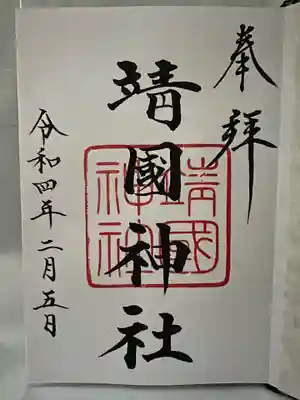 奉拝
靖國神社
靖國神社
令和四年二月五日